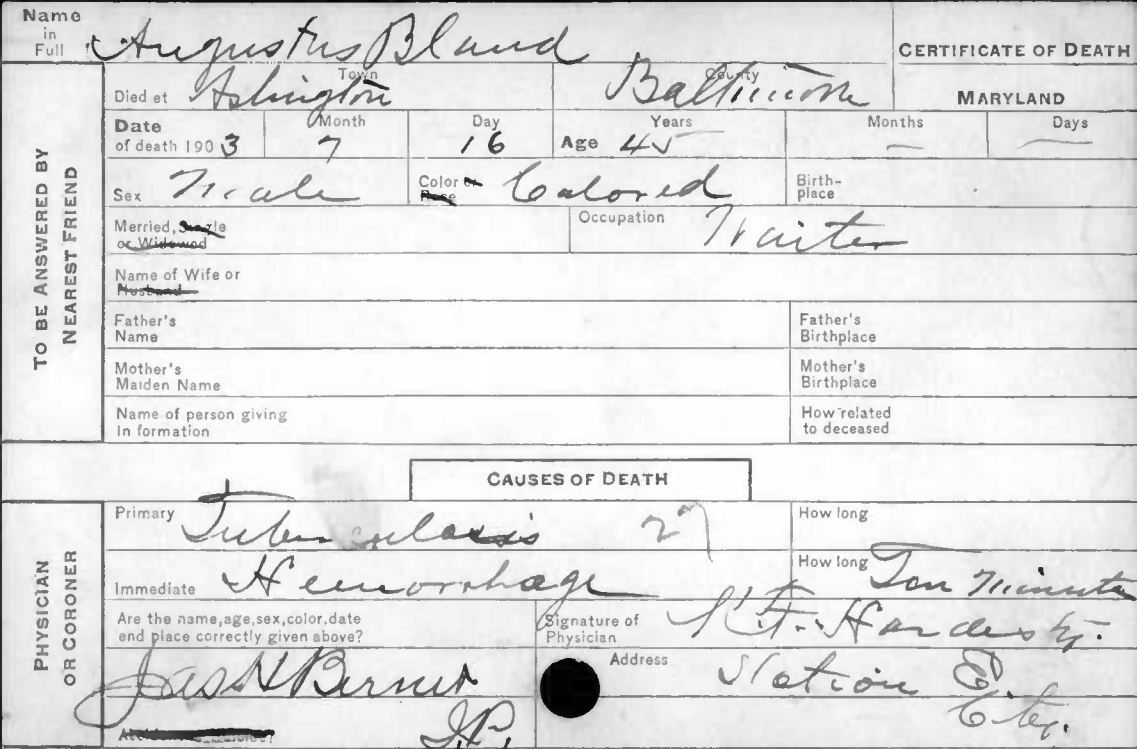 Name in Full Augustus Bland
CERTIFICATE OF DEATH
TO BE ANSWERED BY NEAREST FRIEND
Died at Town Arlington County Baltimore MARYLAND
Date of death 1903 Month 7 Day 16 Age 45 Years Months — Days —
Sex Male Color or Race Colored Birth-place
Married, Single or Widowed Occupation Waiter
Name of Wife or Husband
Father's Name Father's Birthplace
Mother's Maiden Name Mother's Birthplace
Name of person giving In formation How related to deceased
CAUSES OF DEATH
PHYSICIAN OR CORONER
Primary Tuberculosis 27 How long
Immediate Hemorrhage How long Ten Minutes
Are the name, age, sex, color, date and place correctly given above? Signature of Physician F. Hardesty.
Jas H Address Station E.
J.P. City.